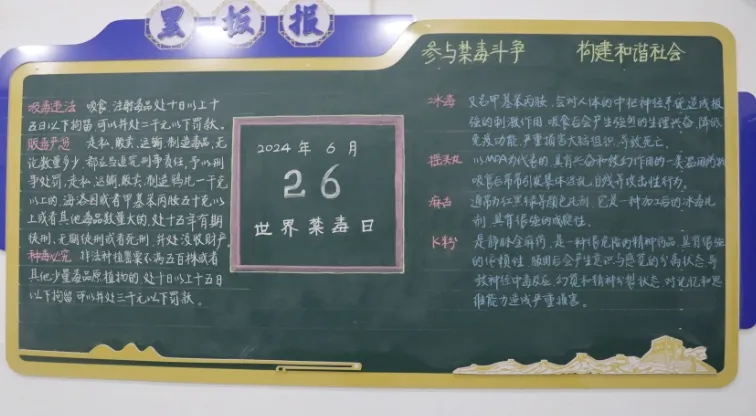 黑板报
参与禁毒斗争 构建和谐社会
吸毒违法 吸食、注射毒品处十日以上十
五日以下拘留可以并处二千元以下罚款。
贩毒严惩 走私、贩卖、运输、制造毒品，无
论数量多少，都应当追究刑事责任，予以刑
事处罚，走私、运输、贩卖、制造鸦片一千克
以上的、海洛因或者甲基苯丙胺五十克以
上或者其他毒品数量大的，处十五年有期
徒刑、无期徒刑或者死刑，并处没收财产。
种毒必究 非法种植罂粟不满五百株或者
其他少量毒品原植物的，处十日以上十五日
以下拘留可以并处三千元以下罚款。
2024年6月
26
世界禁毒日
冰毒 又名甲基苯丙胺，会对人体的中枢神经系统造成极
强的刺激作用 吸食后会产生强烈的生理兴奋，降低
免疫功能，严重损害大脑组织，导致死亡。
摇头丸 以MDA为代表的，具有兴奋和致幻作用的一类
吸食后常常引发集体淫乱、自残与攻击性行为。
麻古 通常为红黑绿等颜色片剂，它是一种加工后的冰毒片
剂，具有很强的成瘾性。
K粉 是静脉全麻药，是一种很危险的精神药品，具有很强
的依赖性 服用后会产生意识与感觉的分离状态，导
致神经中毒反应、幻觉和精神分裂状态，对记忆和思
维能力造成严重损害。